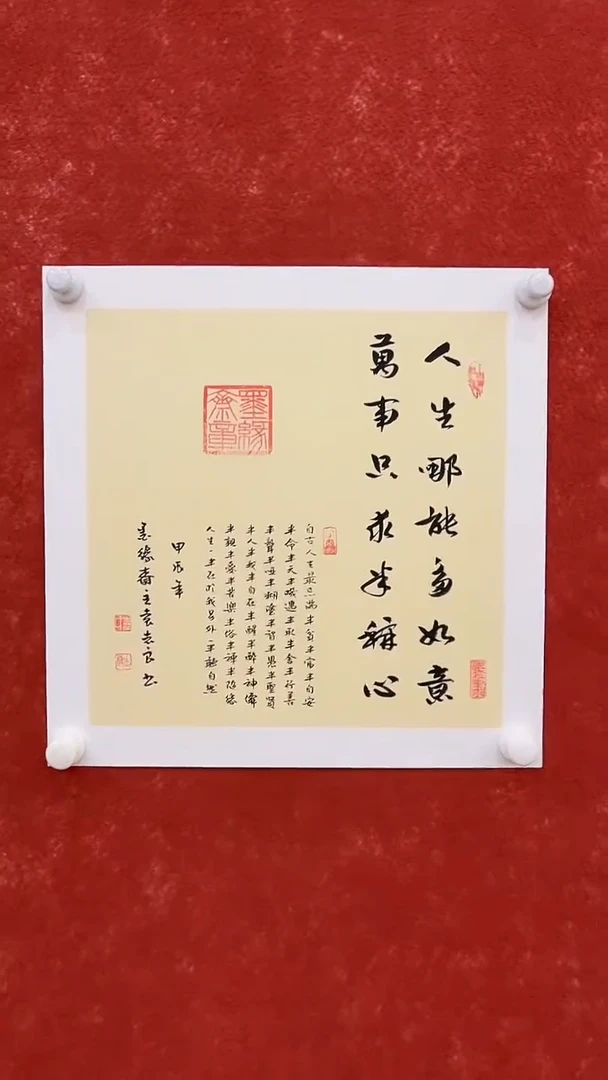 人生哪能多如意
萬事只求半稱心
自古人生最忌滿半貧半富半自安
半命半天半機遇半取半舍半行善
半聾半啞半糊塗半智半愚半聖賢
半人半我半自在半醒半醉半神儒
半親半愛半苦樂半俗半禪半隨緣
人生一半在於我另外一半聽自然
甲辰年
墨緣齋主袁志良书
墨緣齋章